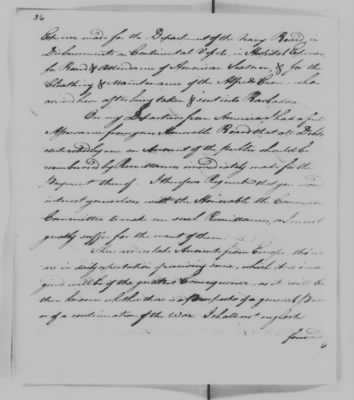 26
made for the Department of the Navy Board, in
Disbursements on Continental Vessels, in Hospital
for Board & Attendance of American Seamen, & for the
Cloathing & Maintenance of the
after being taken & sent into Barbados.
On my Departure from America I had a full
Assurance from your Honorable Board that all Debts
contracted by me on Account of the public should be
reimbursed by Remittances immediately made for the
Payment thereof. I therefore Request that you would
interest yourselves with the Honorable the Commercial
Committee to make me such Remittances, as I must
greatly suffer for the want of them.
There are no late Accounts from Europe, tho' we
are in daily expectation of receiving some, which it is ima-
gined will be of the greatest Consequence, as it will be
then known whether there is a prospect of a general
or of a continuation of the War. I shall not neglect